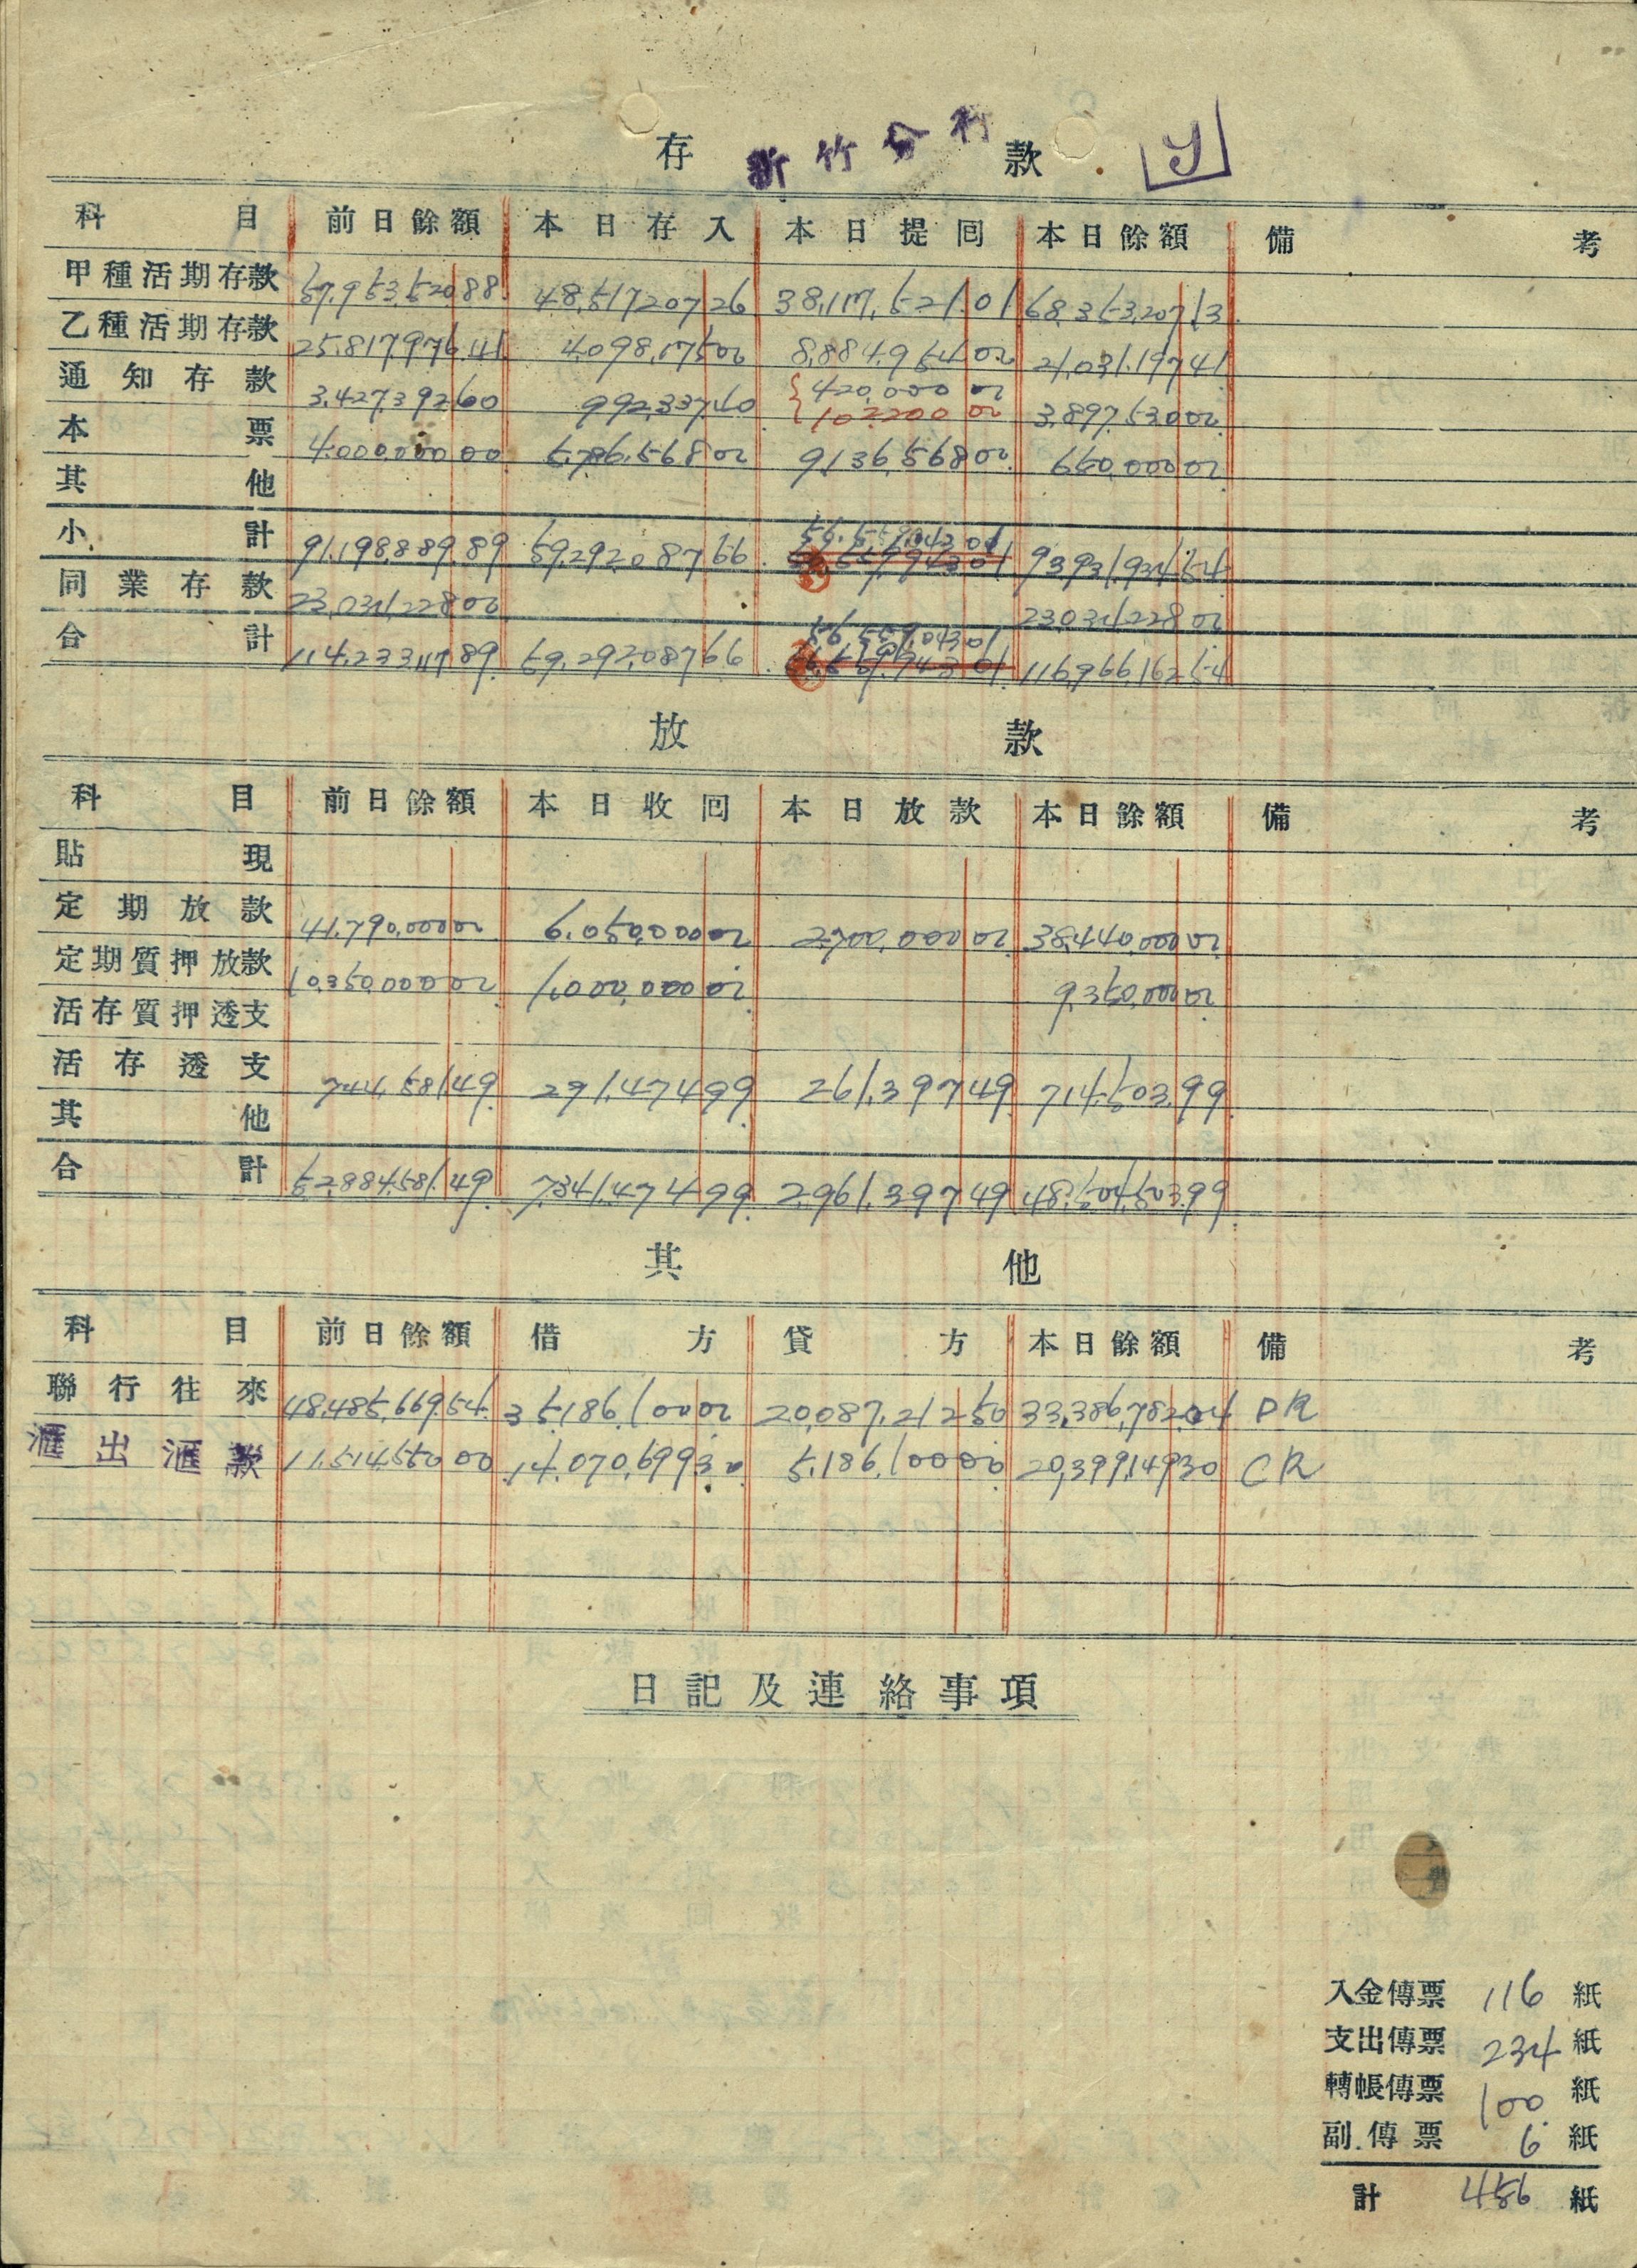 存 新竹分行 款 y
科目 前日餘額 本日存入 本日提囘 本日餘額 備考
甲種活期存款 57,953,520.88 48,517,207.26 38,117,521.01 68,353,207.13
乙種活期存款 25,817,976.41 4,098,175.00 8,884,954.00 21,031,197.41
通知存款 3,427,392.60 992,337.40 420,000.00 102,200.00 3,897,530.00
本票 4,000,000.00 5,786,568.00 9,136,568.00 650,000.00
其他
小計 91,198,889.89 59,292,087.66 56,559,043.01 56,559,943.01 93,931,934.54
同業存款 23,034,228.00 23,034,228.00
合計 114,233,117.89 59,292,087.66 56,559,043.01 56,559,943.01 116,966,162.54
放款
科目 前日餘額 本日收囘 本日放款 本日餘額 備考
貼現
定期放款 41,790,000.00 6,050,000.00 2,700,000.00 38,440,000.00
定期質押放款 10,350,000.00 1,000,000.00 9,350,000.00
活存質押透支
活存透支 744,581.49 291,474.99 261,397.49 714,503.99
其他
合計 52,884,581.49 7,341,474.99 2,961,397.49 48,504,503.99
其他
科目 前日餘額 借方 貸方 本日餘額 備考
聯行往來 48,485,669.54 20,087,212.50 33,386,782.04 DR
滙出滙款 11,514,550.00 14,070,699.30 5,186,100.00 20,399,149.30 CR
日記及連絡事項
入金傳票 116 紙
支出傳票 234 紙
轉帳傳票 100 紙
副傳票 6 紙
計 456 紙